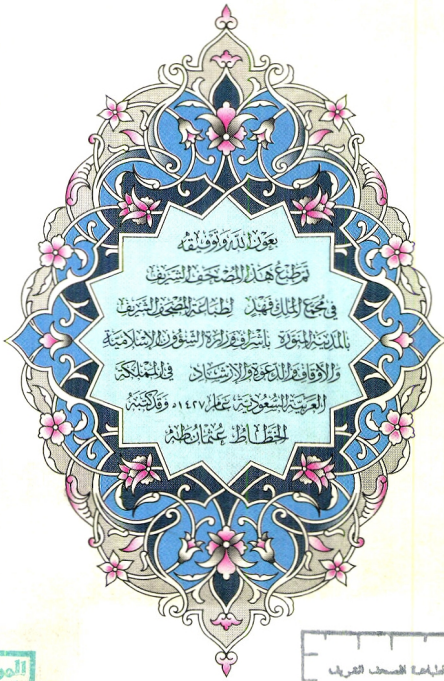 بعون الله وتوفيقه
تم طبع هذا المصحف الشريف
في مجمع الملك فهد لطباعة المصحف الشريف
بالمدينة المنورة بإشراف وزارة الشؤون الإسلامية
والأوقاف والدعوة والإرشاد في المملكة
العربية السعودية عام ١٤٢٧ه وقد كتبه
الخطاط عثمان طه
لطباعة المصحف الشريف